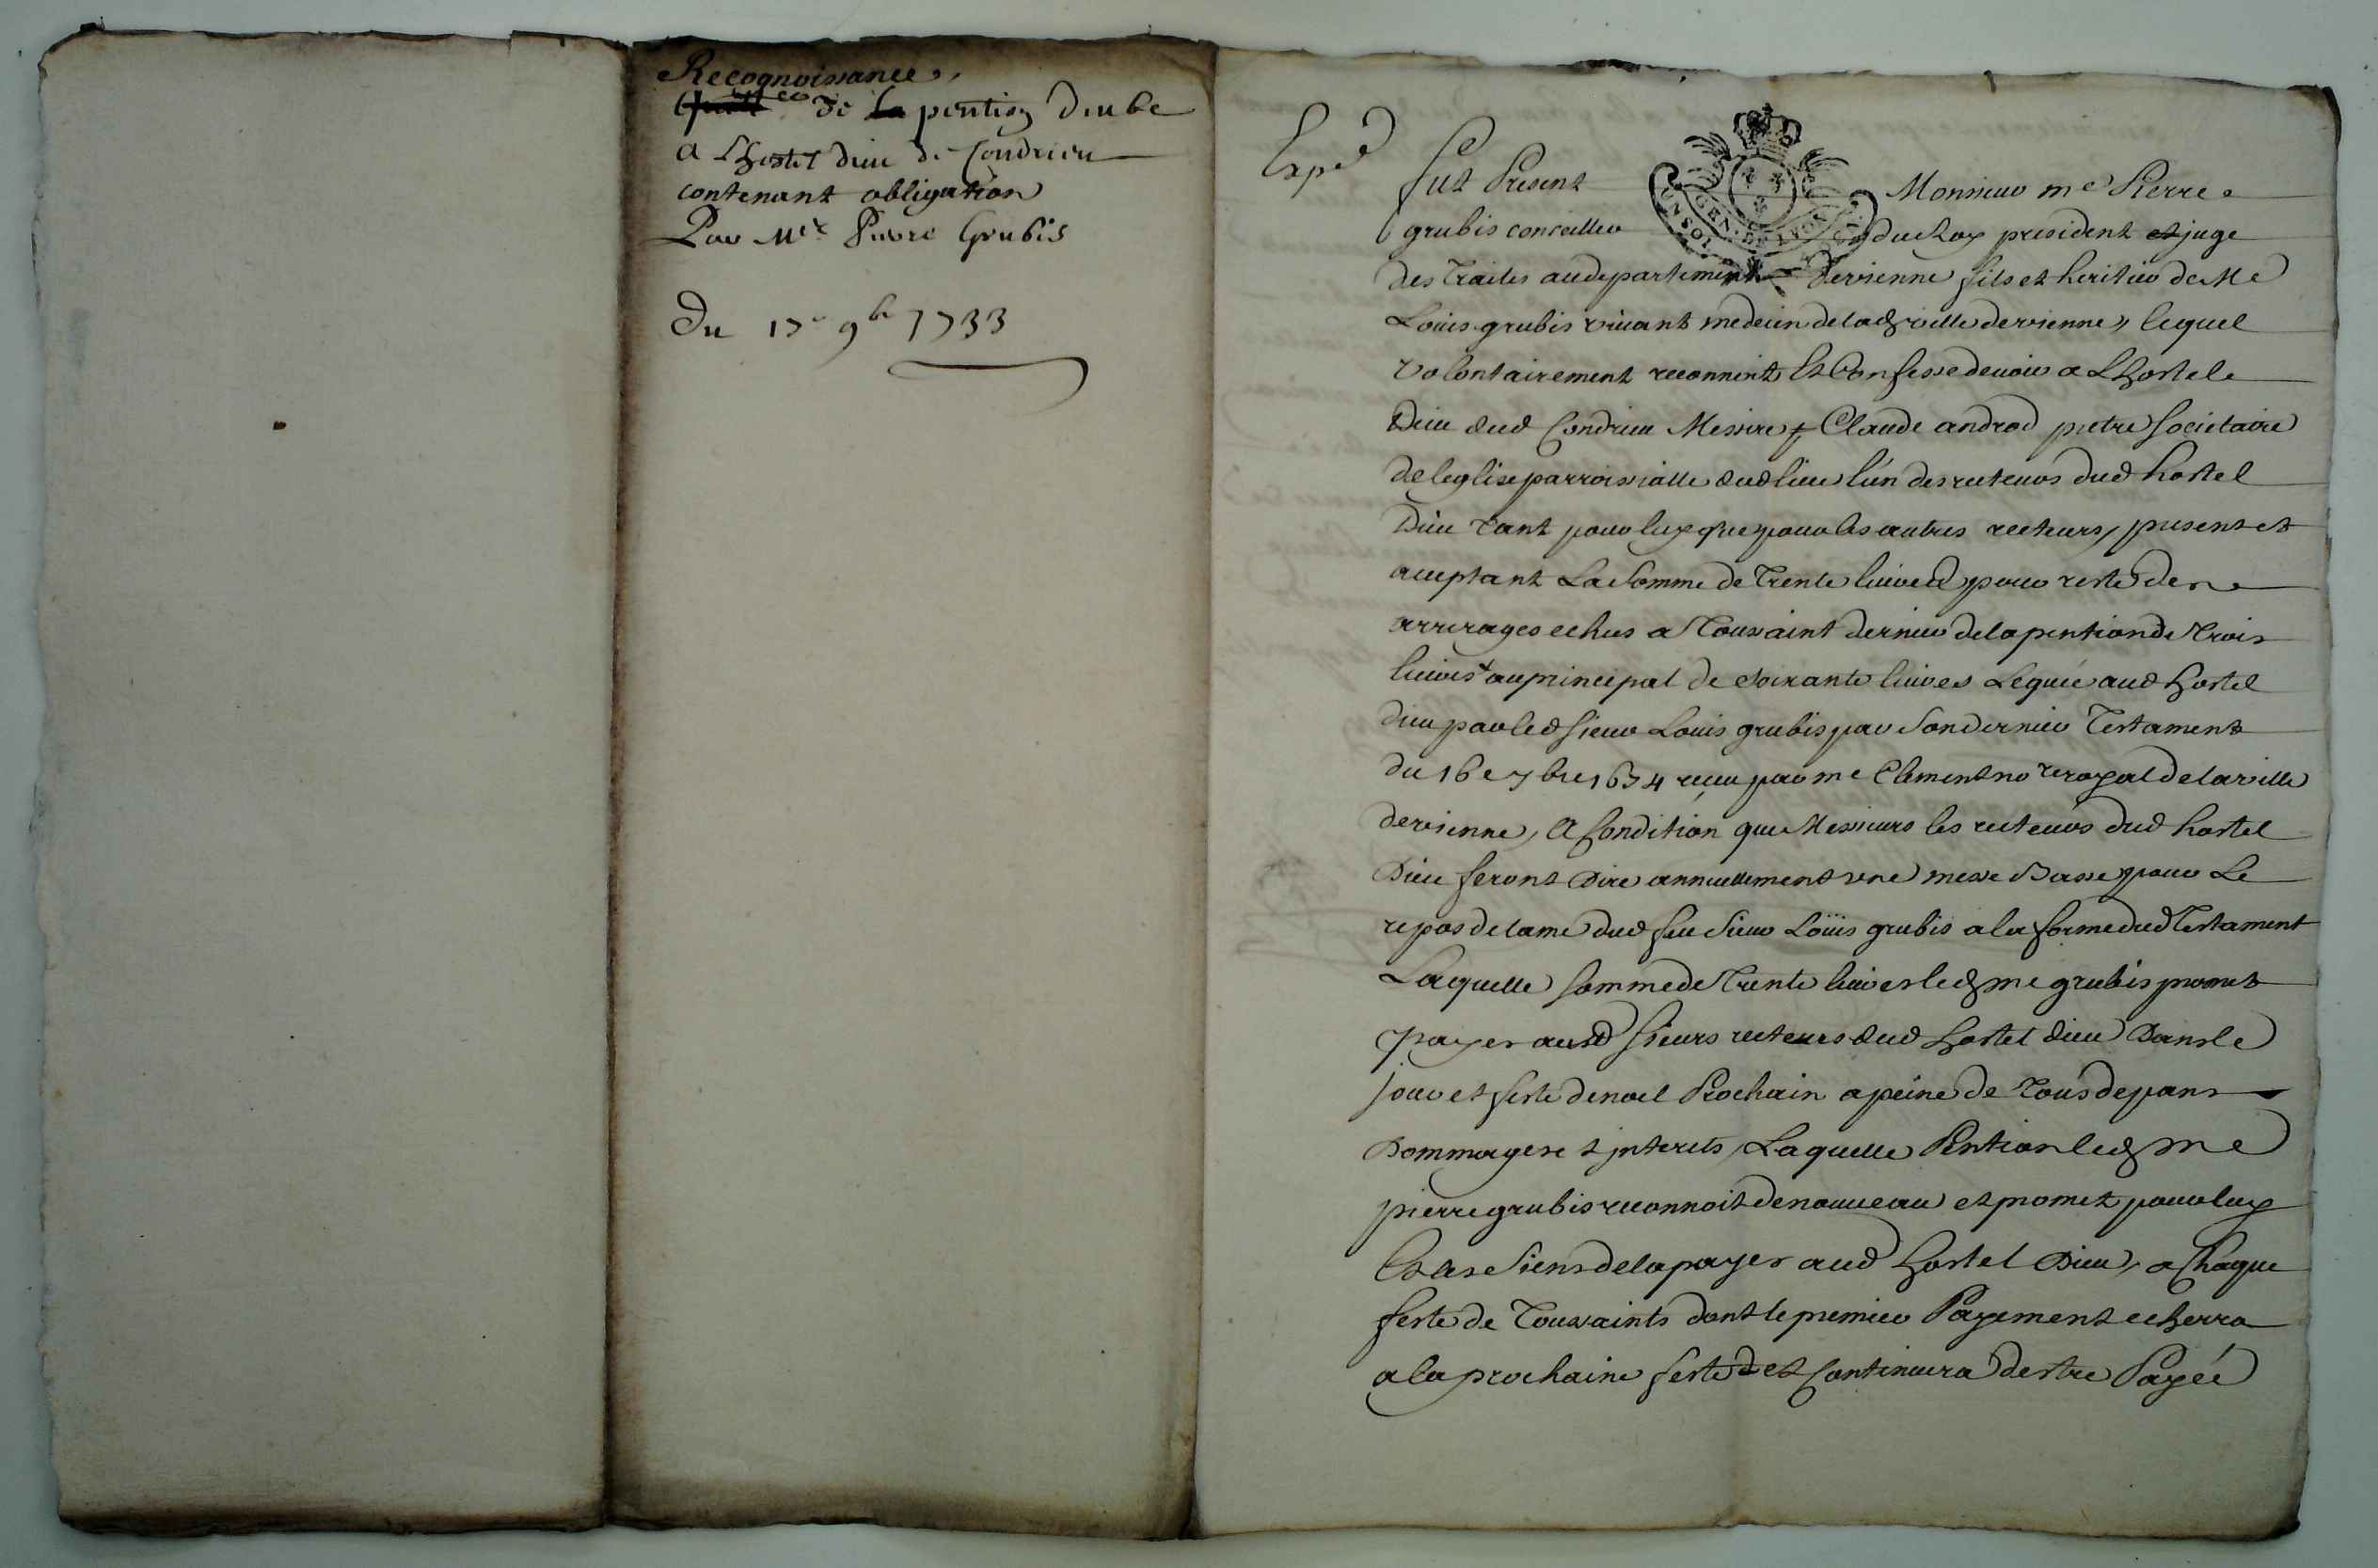 Recognoissance
de la pention dube
a Lhostel dieu de Condrieu
contenant obligation
Par Mre Pierre Grubis
Du 17e 9bre 1733
Expé
fut Present Monsieur me Pierre
grubis conceiller du Roy president et juge
GEN. DE LYON
UN SOL
des traites au departement de vienne fils et heritier de Me
Louis grubis vivant medecin de lad ville de vienne, lequel
volontairement reconnoit Et Confesse devoir a Lhostel
Dieu dud Condrieu Messire Claude androd pretre societaire
de leglise parroissialle dud lieu l'un des recteurs dud hostel
Dieu tant pour luy que pour les autres recteurs, present et
acceptant La Somme de trente livres pour reste des
arrerages echus a Toussaint dernier de la pention de trois
livres au principal de soixante livres Leguée aud hostel
dieu par led sieur Louis grubis par son dernier Testament
du 16e 7bre 1654 receu par me Clement nore royal de la ville
de vienne, a Condition que Messieurs les recteurs dud hostel
Dieu feront Dire annuellement une messe Basse pour Le
repos de lame dud feu sieur Loüis grubis a la forme dud Testament
Laquelle somme de trente livres led me grubis promet
payer ausd sieurs recteurs dud hostel dieu Dans le
jour et feste de noel Prochain a peine de tous depans
Dommages et jnterets, Laquelle Pention led me
pierre grubis reconnoit de nouveau et promet pour luy
Et les siens de la payer aud hostel Dieu, a Chaque
feste de Toussaints dont le premier Payement echerra
a la prochaine feste et Continuera destre Payée